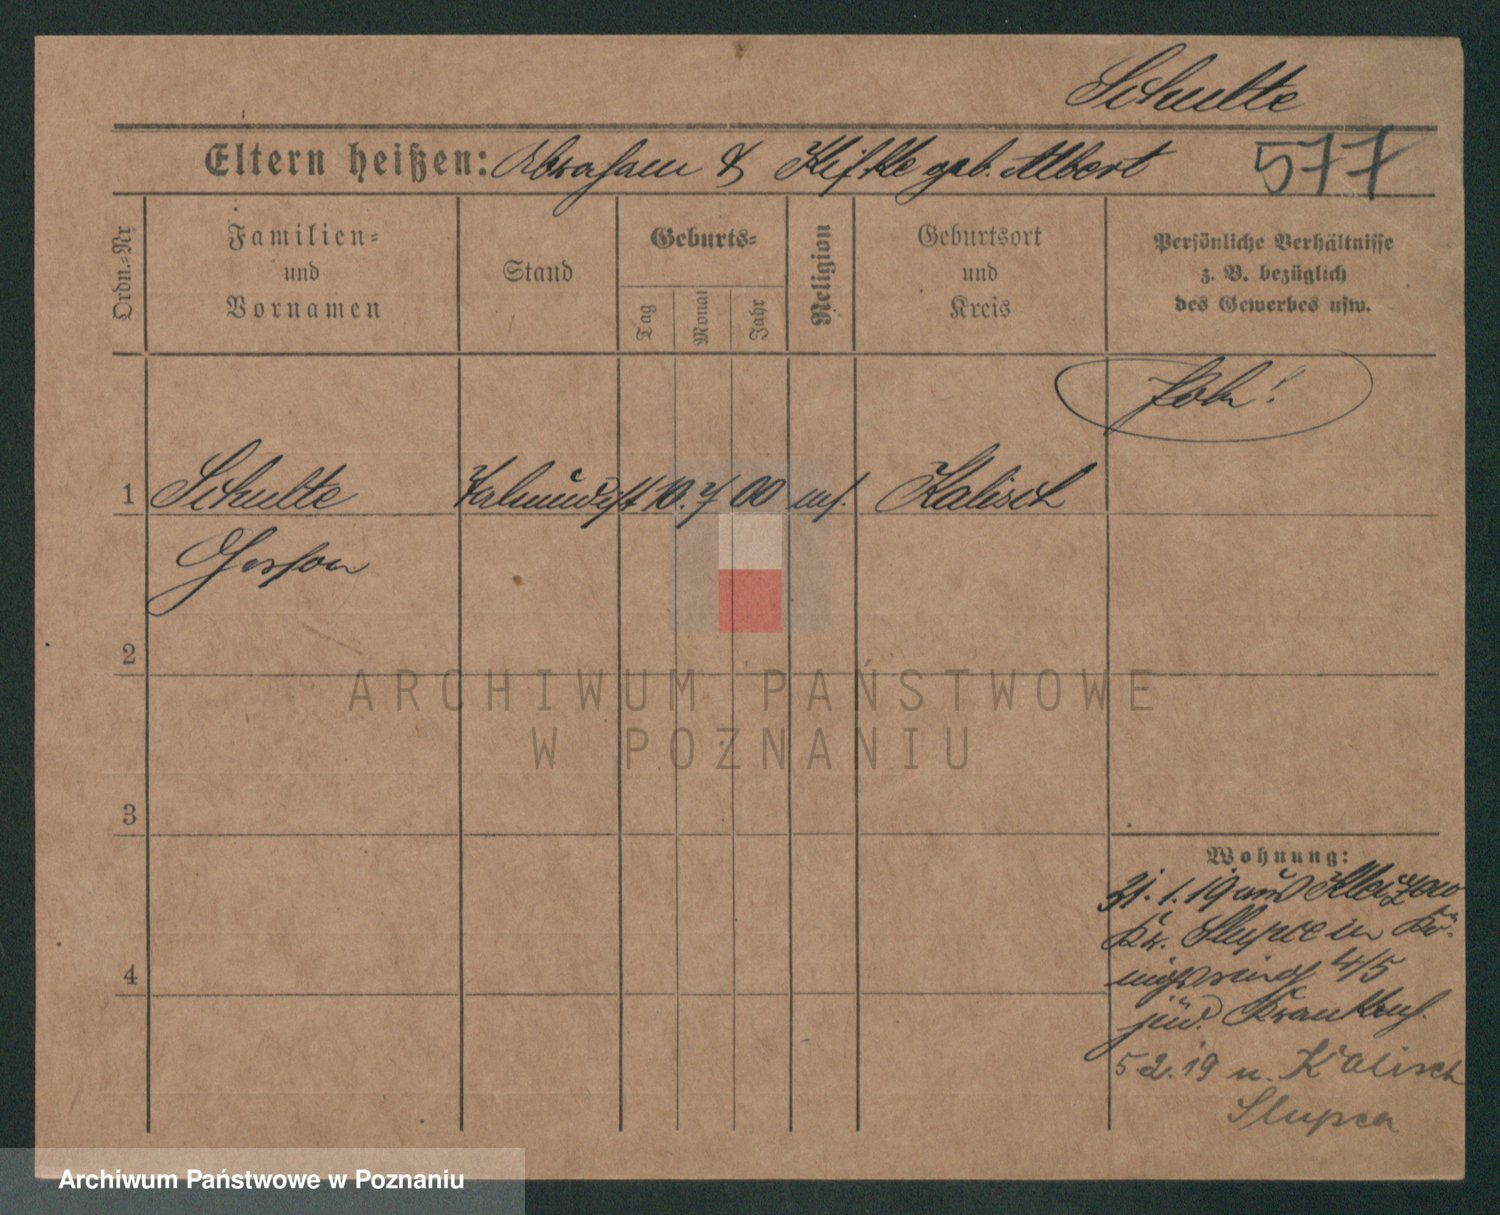 Schulte
Eltern heißen: Abraham & Rifke geb. Albert
577
Ordn.-Nr
Familien-
und
Vornamen
Stand
Geburts-
Tag
Monat
Jahr
Religion
Geburtsort
und
Kreis
Persönliche Verhältnisse
z. B. bezüglich
des Gewerbes usw.
1 Schulte Talmudist 10. 7 00 mos. Kalisch
Gerson
2
3
4
Wohnung:
31.1.19 aus
Kr. Slupce in Kö-
nigsring 4/5
jüd. Krankenh.
5 2.19 n. Kalisch
Slupca
ARCHIWUM PAŃSTWOWE
W POZNANIU
Archiwum Państwowe w Poznaniu